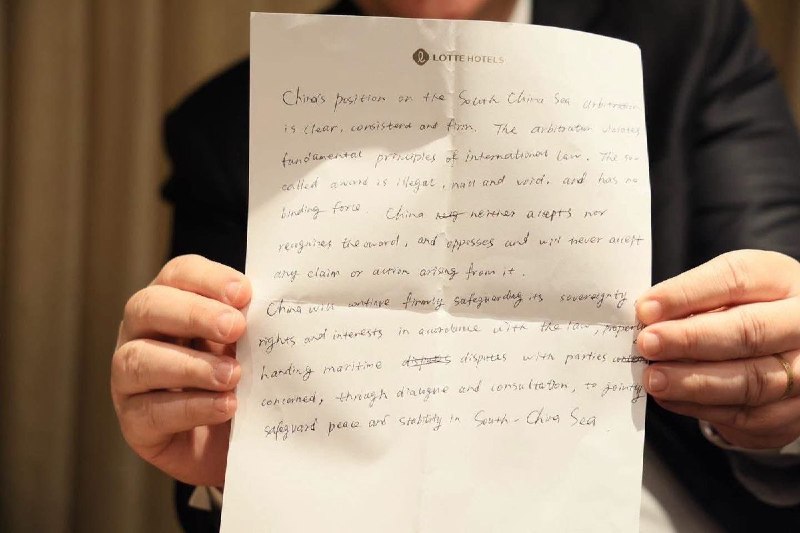 LOTTE HOTELS
China's position on the South China Sea arbitration
is clear, consistent and firm. The arbitration violates
fundamental principles of international law. The so-
called award is illegal, null and void, and has no
binding force. China neither accepts nor
recognizes the award, and opposes and will never accept
any claim or action arising from it.
China will continue firmly safeguarding its sovereignty
rights and interests in accordance with the law, properly
handing maritime disputes disputes with parties
concerned, through dialogue and consultation, to jointly
safeguard peace and stability in South-China Sea